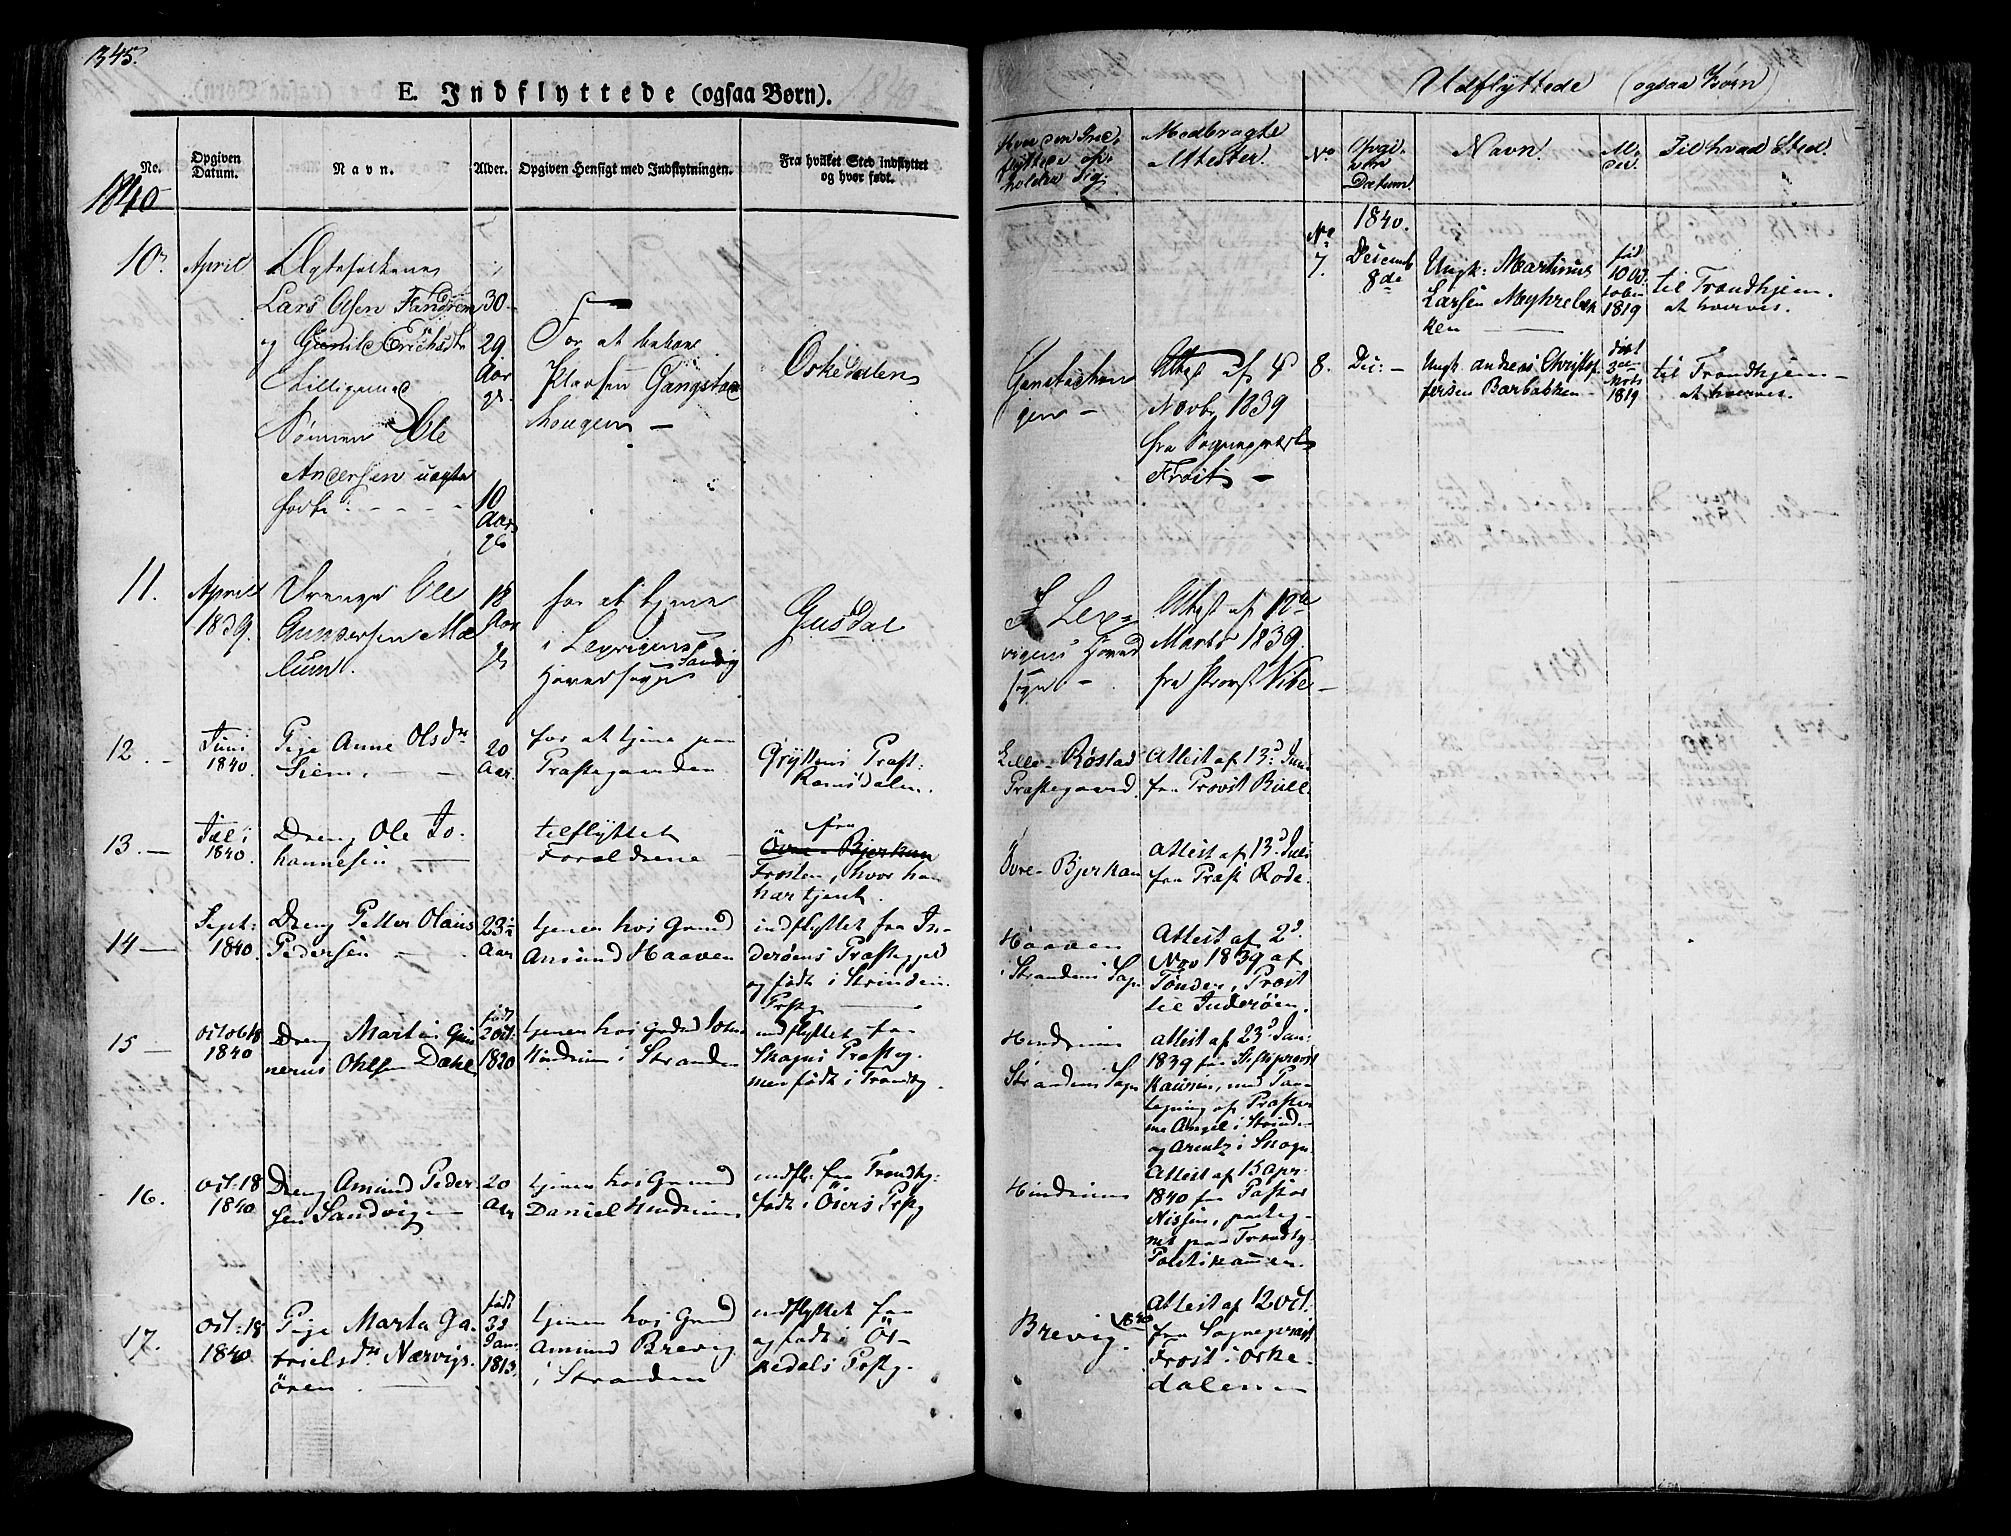 345.
E. Indflyttede (ogsaa Børn).
No. Opgiven Datum. Navn. Alder. Opgiven Hensigt med Indflytningen. Fra hvilket Sted indflyttet og hvor født.
1840
10, April
Lars Olsen
og Gunild Erichsdtr
30
29
Aar
Sønnen Ole
Andersen uægte
født
10
Aars
For at
Pladsen Gangstad
hougen
Orkedalen
Attest af 4
Novbr 1839
fra Sognepræst
Frost
11. April
1839.
Drengen Ole
Gundersen
18
Aar
for at tjene
i Lexvigens
Hovedsogn
Gusdal
I Lex=
vigens Hoved
sogn.
Attest af 12te
Marts 1839.
fra Provst Vibe
12. Juni
1840.
Pige Anne Olsdtr
Siem.
20
Aar.
for at tjene paa
Præstegaarden
Gryttens Præst:
Romsdalen.
Lille Røstad
Præstegaard.
Attest af 13d Juni
fra Provst Bull.
13. Juli
1840.
Dreng Ole Jo-
hannesen
tilflyttet
Forældrene
fra
Övre Bjerkan
Frosten, hvor han
har tjent.
Övre Bjerkan
Attest af 13d Juli
fra Præst Rode.
14 Sept:
1840.
Dreng Petter Olaus
Pedersen
23
Aar
tjener hos Gmd
Amund Haaven
indflyttet fra In-
derøens Præstegjeld
og født i Strinden
Prstg
Haaven
i Strandens Sogn
Attest af 2d
Nov 1839 af
Tønder, Prost
til Inderøen.
15 Octob 18
1840
Dreng Martin Gun
nerius Ohlsen Dahl
født
2 Oct.
1820
tjener hos Gdmd John
Hindrum i Stranden
indflyttet fra
Skogns Præsteg
men født i Trondhj.
Hindrum
Strandens Sogn
Attest af 23d Jan:
1839 fra Stiftsprovst
med Paa-
tegning af Præster
ne Angel i Strinde
og Arentz i Skogn
16. Oct: 18
1840.
Dreng Amund Peder
sen Sandvigen
20
Aar
tjener hos Gmd
Daniel Hindrum
indfl: fra Trondhj:
født i Ösers Prstg
Hindrum
Attest af 15 Apr:
1840 fra Pastor
Nissen, paateg-
net paa Trondhj.
Politikammer.
17. Oct: 18
1840.
Pige Marta Ga-
brielsdtr Nærvigs
ören
født
Jan:
1813.
tjener hos Gmd
Amund Brevig
i Stranden
indflyttet fra
og født i Ör-
kedals Prstg.
Brevig
Attest af 12 Oct.
1840
fra Sognepræst
Frost i Orke-
dalen
Udflyttede (ogsaa Børn)
Hvor den Ind-
flyttede op-
holder sig.
Medbragte
Attester.
No Opgi-
ven
Datum. Navn. Al-
der. Til hvad Sted.
1840.
No
7. Decemb
8de
Ungk: Martinus
Larsen Myhrebak
ken
fød
10 Oc
tober
1819
til Trondhjem
at hverves.
8. Dec:
Ungk: Andreas Christof
fersen Barbakken
født
3die
Novb
1819
til Trondhjem
at hverves.